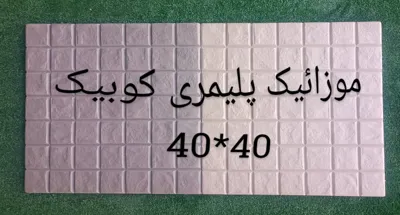 موزائیک پلیمری کوبیک
40*40